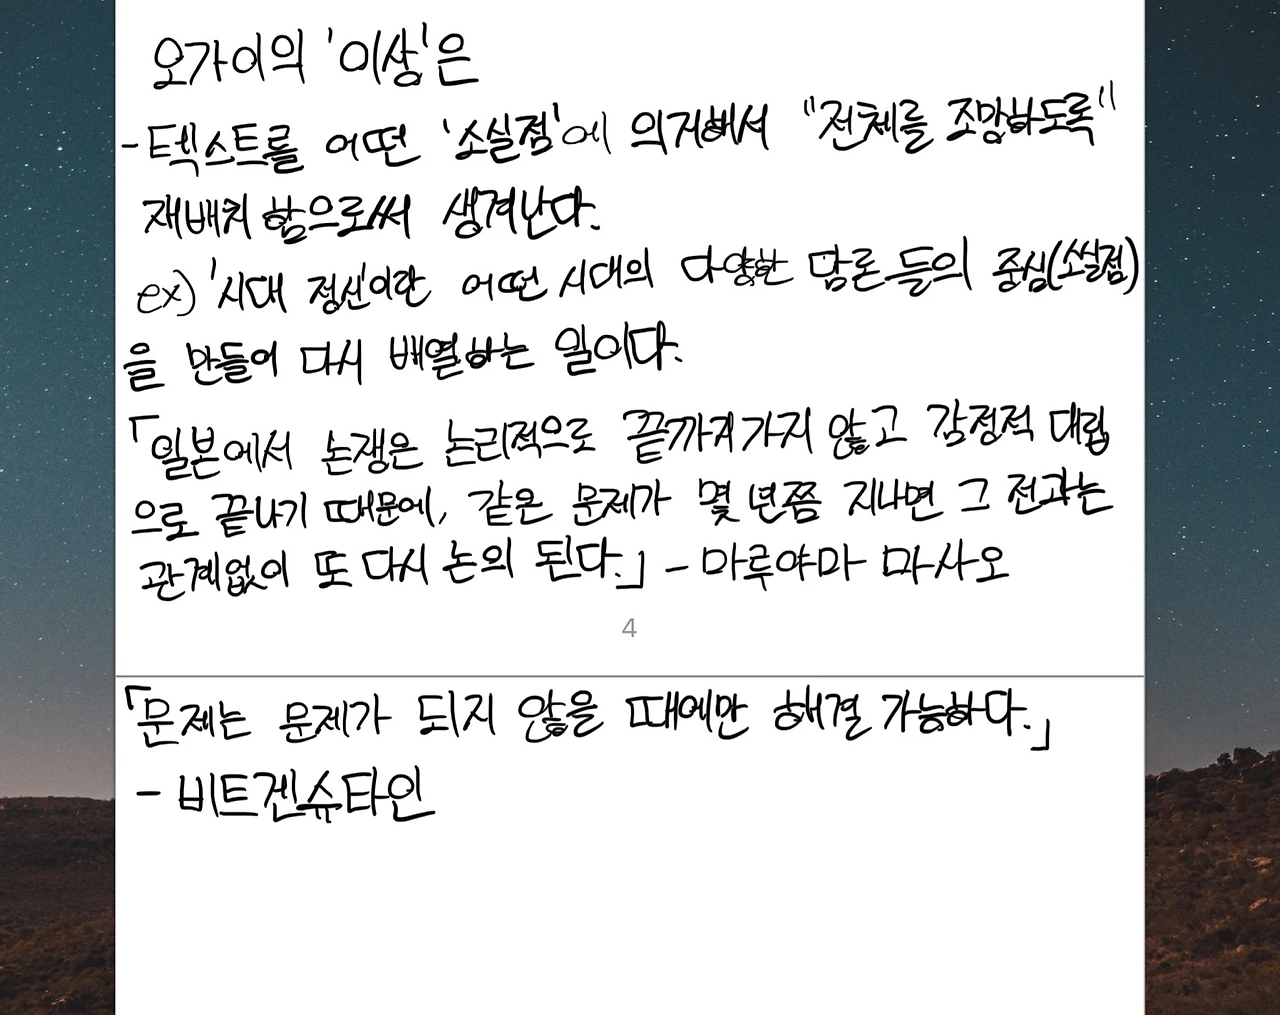 오가이의 '이상'은
- 텍스트를 어떤 '소실점'에 의거해서 "전체를 조망하도록"
재배치 함으로써 생겨난다.
ex) '시대 정신이란 어떤 시대의 다양한 담론들의 중심(소실점)
을 만들어 다시 배열하는 일이다.
「일본에서 논쟁은 논리적으로 끝까지 가지 않고 감정적 대립
으로 끝나기 때문에, 같은 문제가 몇 년쯤 지나면 그 전과는
관계없이 또 다시 논의 된다.」 - 마루야마 마사오
4
「문제는 문제가 되지 않을 때에만 해결 가능하다.」
- 비트겐슈타인